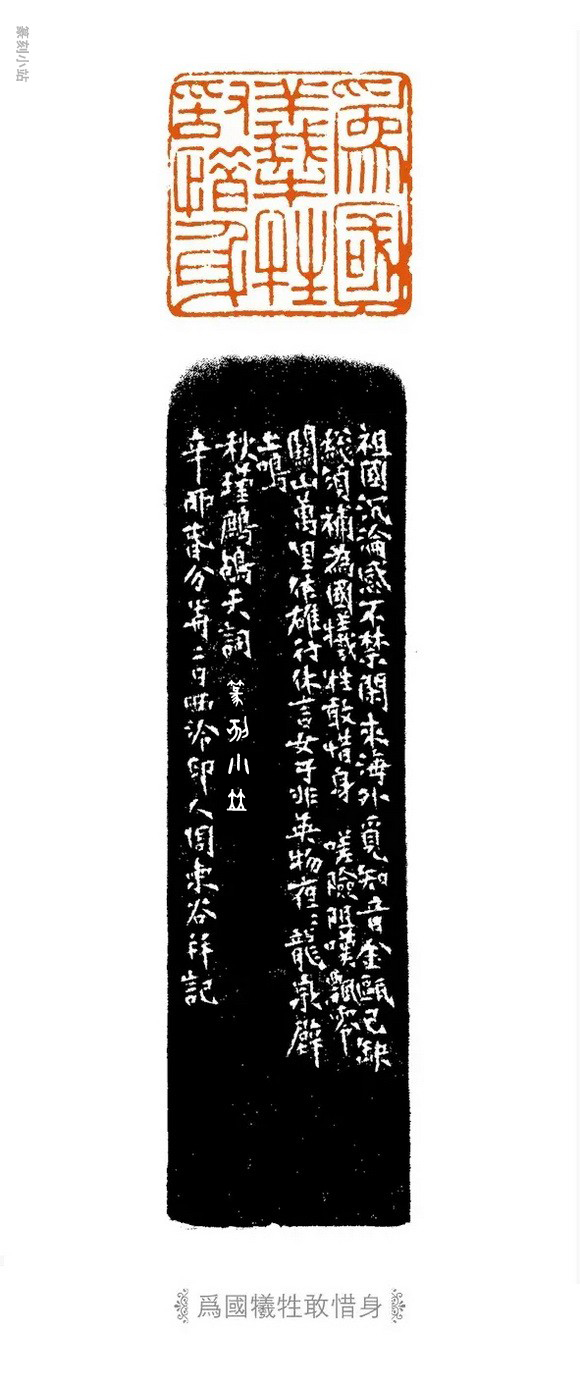 篆刻小站
爲國
犧牲
敢惜身
祖國沉淪感不禁閒來海外覓知音金甌已缺
總須補為國犧牲敢惜身 嗟險阻嘆飄零
關山萬里作雄行休言女子非英物夜〻龍泉壁
上鳴
秋瑾鷓鴣天詞 篆刻小站
辛卯春分前二日西泠印人閭東谷祥記
爲國犧牲敢惜身